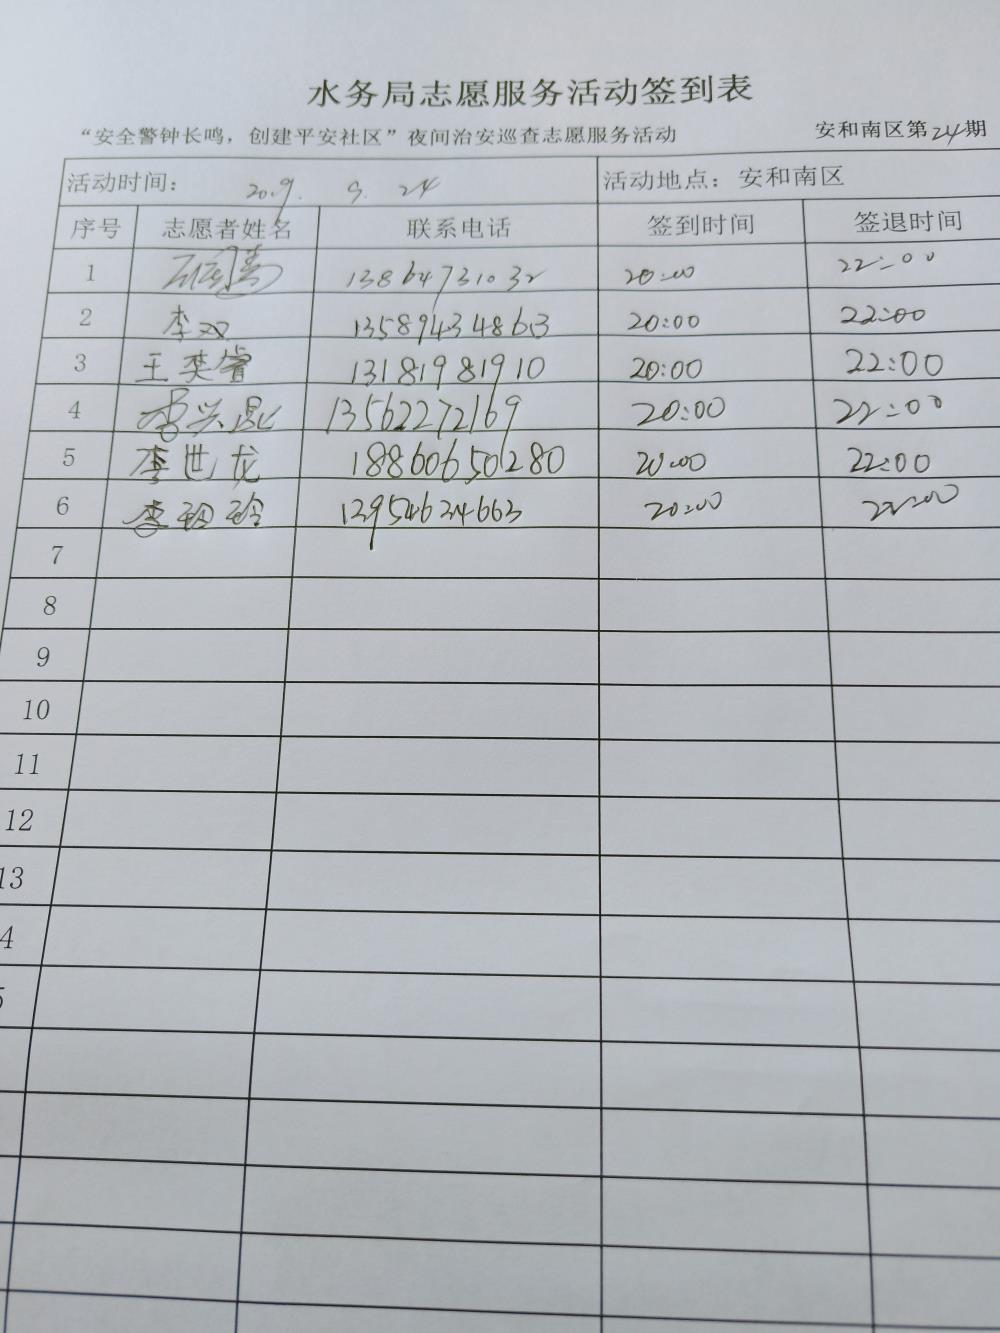 水务局志愿服务活动签到表
“安全警钟长鸣，创建平安社区”夜间治安巡查志愿服务活动 安和南区第24期
活动时间： 2019. 9. 24 活动地点：安和南区
序号 志愿者姓名 联系电话 签到时间 签退时间
1 13864731032 20:00 22:00
2 李双 13589434863 20:00 22:00
3 王奕睿 13181981910 20:00 22:00
4 李兴昆 13562272169 20:00 22:00
5 李世龙 18860650280 20:00 22:00
6 李玲 13954634663 20:00 22:00
7
8
9
10
11
12
13
4
5